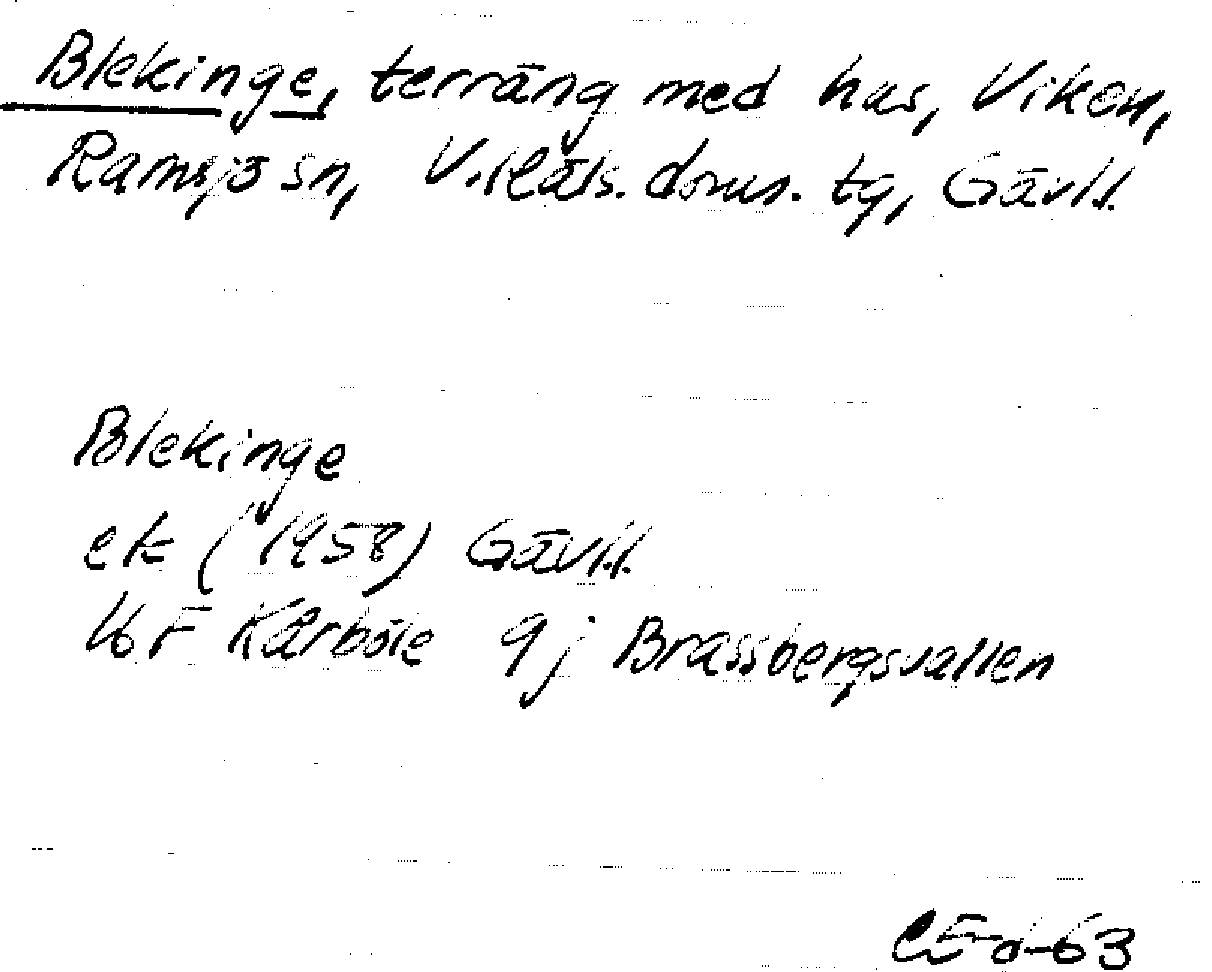 Blekinge, terräng med hus, Viken,
Ramsjö sn, V. Häls. doms. tg, Gävl.l.
Blekinge
ek (1958) Gävl.l.
16 F Kårböle 9j Brassbergsvallen
63